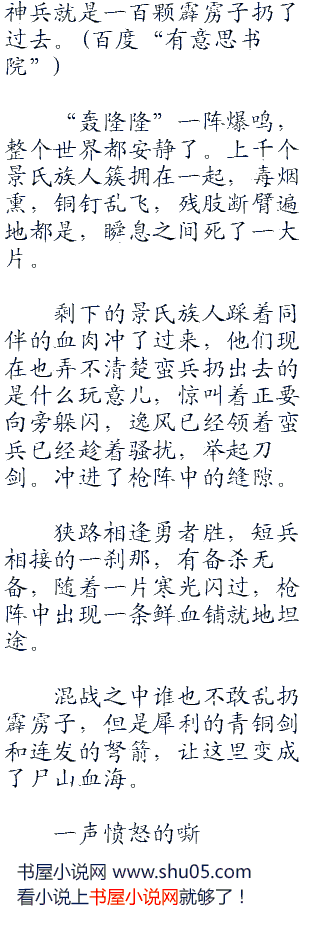 神兵就是一百颗霹雳子扔了
过去。(百度“有意思书
院”)
“轰隆隆”一阵爆鸣，
整个世界都安静了。上千个
景氏族人簇拥在一起，毒烟
熏，铜钉乱飞，残肢断臂遍
地都是，瞬息之间死了一大
片。
剩下的景氏族人踩着同
伴的血肉冲了过来，他们现
在也弄不清楚蛮兵扔出去的
是什么玩意儿，惊叫着正要
向旁躲闪，逸风已经领着蛮
兵已经趁着骚扰，举起刀
剑。冲进了枪阵中的缝隙。
狭路相逢勇者胜，短兵
相接的一刹那，有备杀无
备，随着一片寒光闪过，枪
阵中出现一条鲜血铺就地坦
途。
混战之中谁也不敢乱扔
霹雳子，但是犀利的青铜剑
和连发的弩箭，让这里变成
了尸山血海。
一声愤怒的嘶
书屋小说网 www.shu05.com
看小说上书屋小说网就够了！